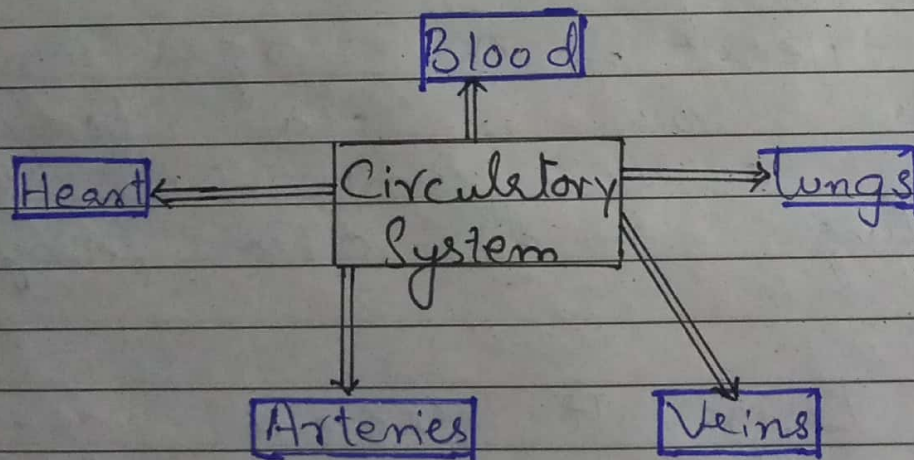 Blood
Heart
Circulatory
System
Lungs
Arteries
Veins